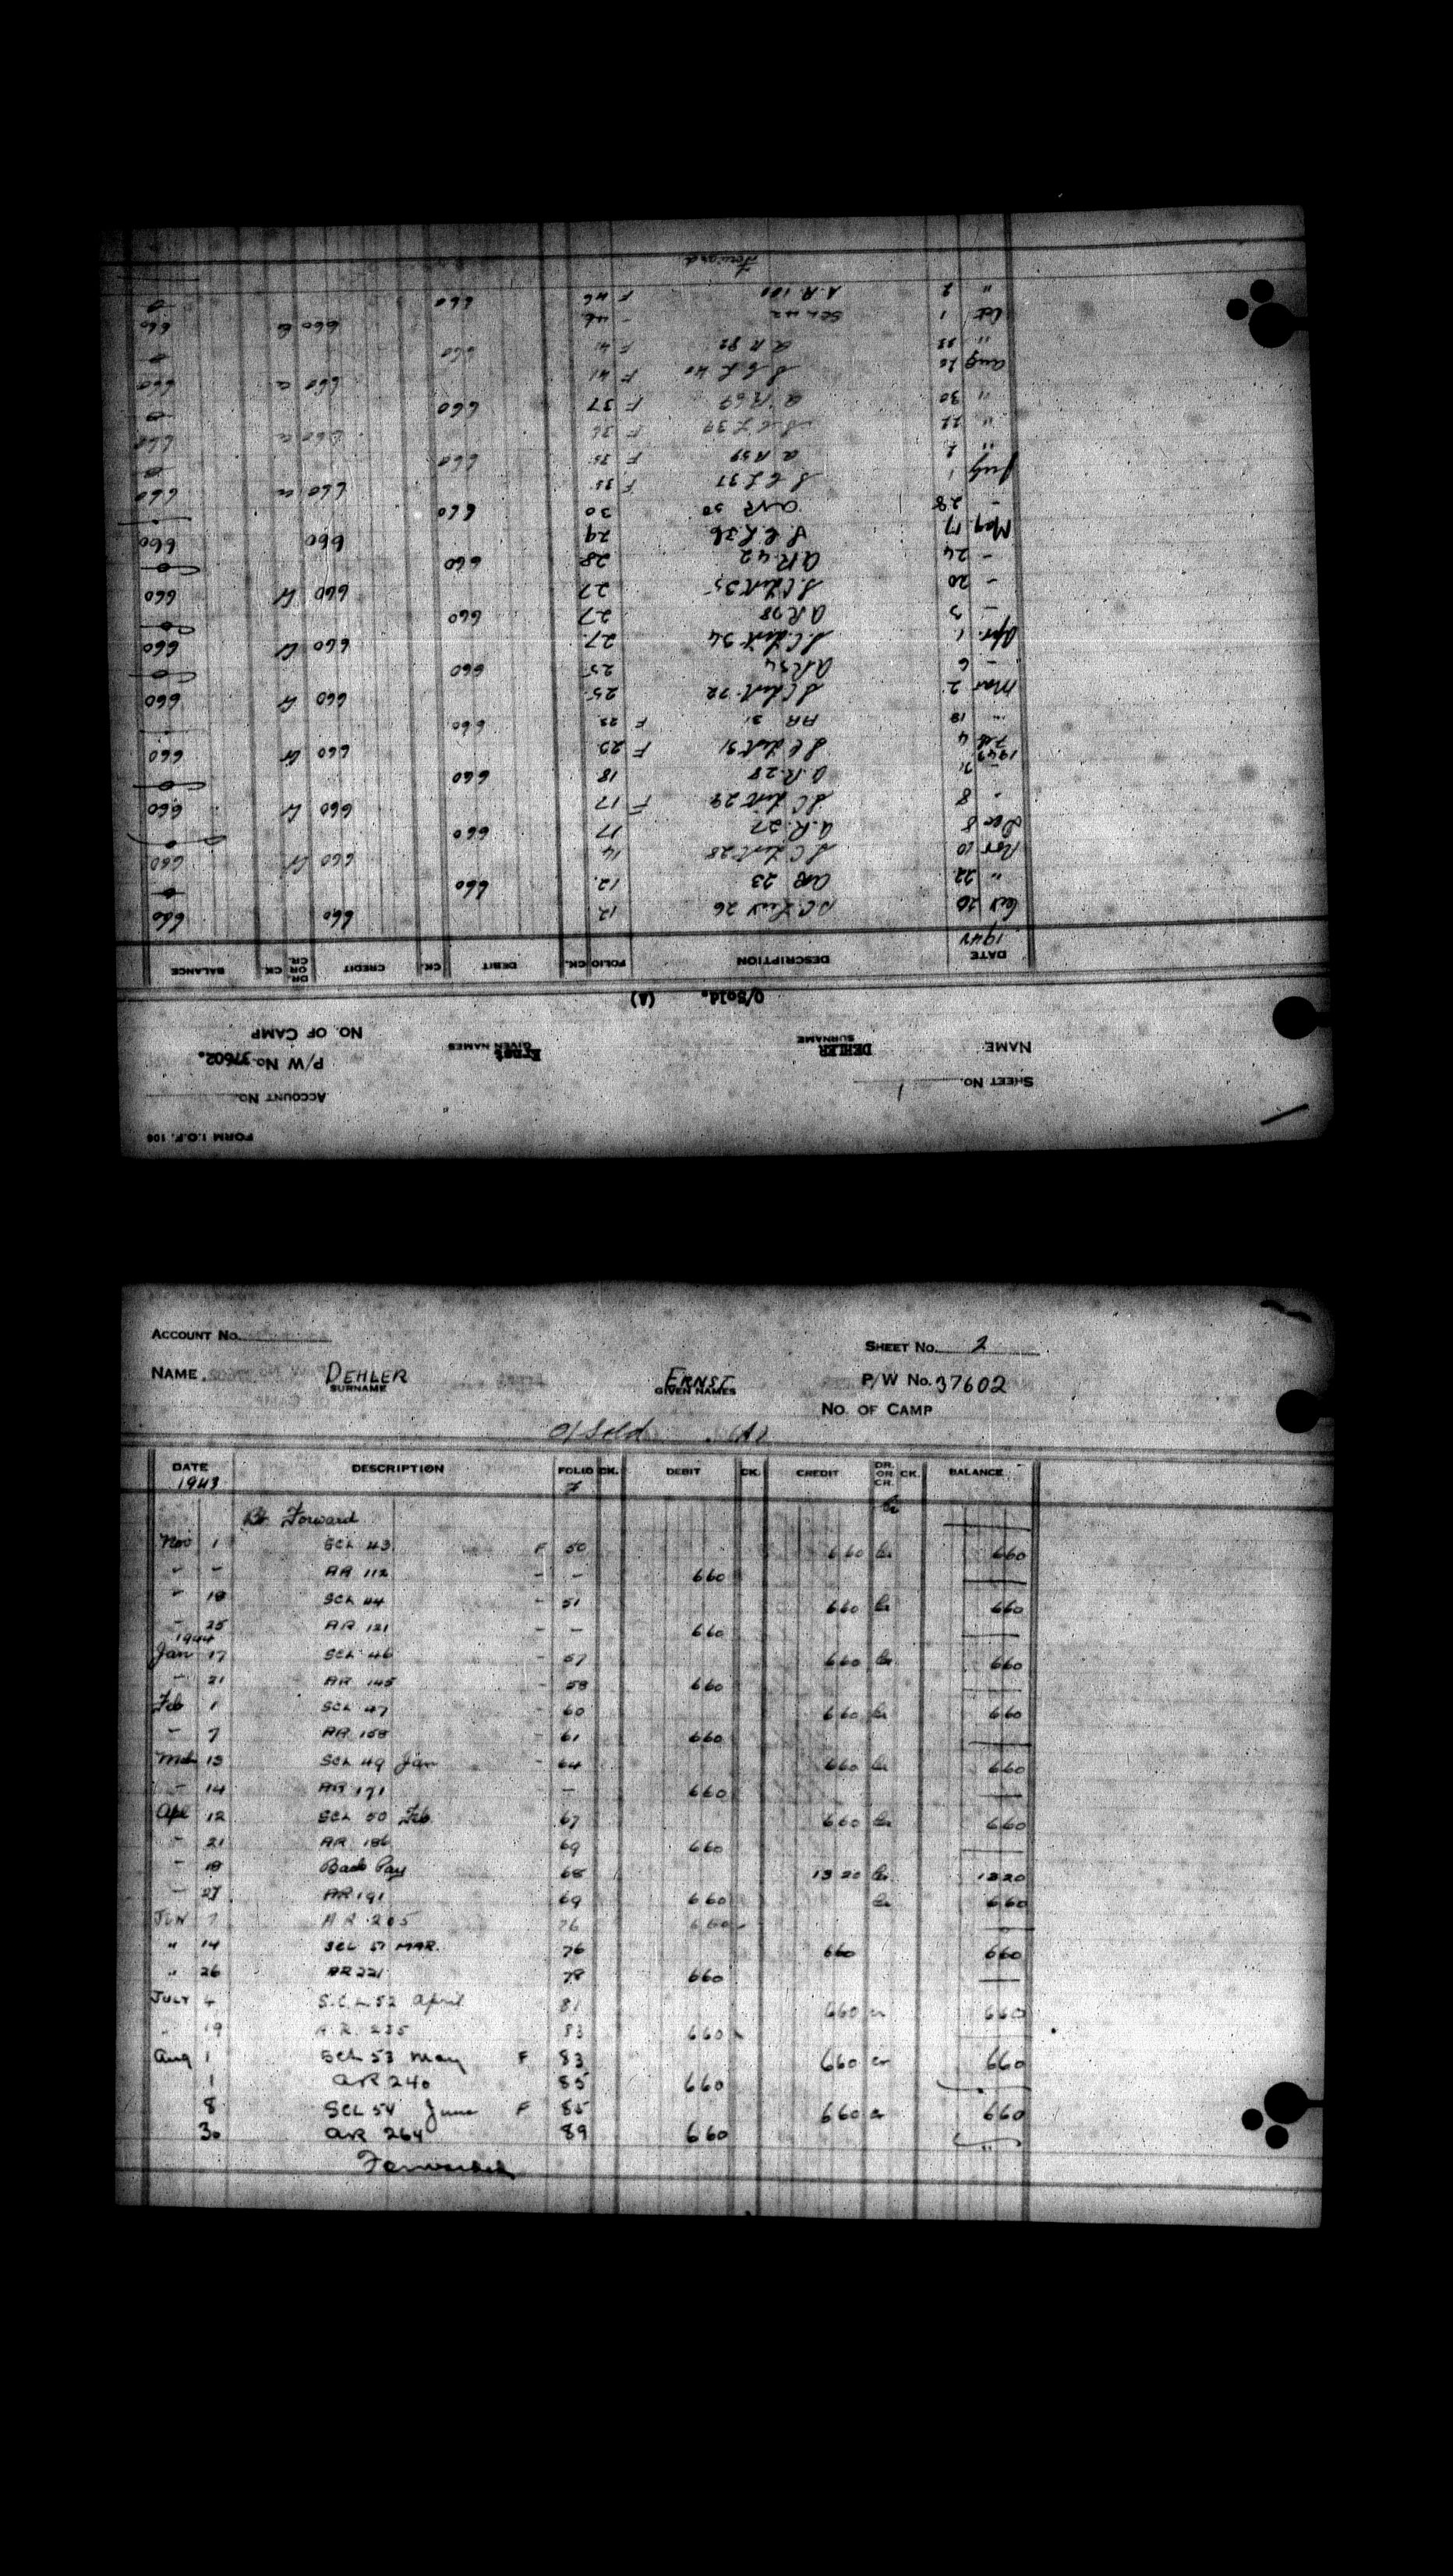 FORM I.O.F. 106
ACCOUNT No.
SHEET No. 1
P/W No. 37602.
NAME DEHLER Ernst
SURNAME GIVEN NAMES
NO. OF CAMP
O/Sold. (A)
DATE DESCRIPTION FOLIO CK. DEBIT CK. CREDIT DR. OR CR. CK. BALANCE
1942
20 S.C. List 26 12 660 660
" 22 AR 23 12. 660 0
Nov 10 S C List 28 14 660 Cr 660
Dec 8 A.R. 27 17 660 0
" 8 S C List 29 F 17 660 Cr 660
21 A.R. 28 18 660 0
1943
Feb 4 S C List 31 F 23 660 Cr 660
" 18 AR 31 F 660
Mar 2 S C List 32 25 660 Cr 660
- 6 AR 34 25 660 0
Apr. 1 S.C List 34 27 660 Cr 660
- 3 AR 38 27 660 0
- 20 S.C List 35 27 660 Cr 660
- 24 AR 42 28 660 0
May 17 S.C.L 36 29 660 660
- 28 AR 50 30 660
July 1 S C L 37 F 35 660 Cr 660
" 2 AR 59 F 35 660 0
" 22 S C L 39 F 36 660 Cr 660
" 30 AR 69 F 37 660 0
Aug S C L 40 F 41 660 Cr 660
" AR 82 F 41 660 0
Oct 1 SCL 42 - 46 660 Cr 660
" 2 A.R. 100 F 46 660 0
Forward
ACCOUNT No.
SHEET No. 2
NAME DEHLER ERNST P/W No. 37602
SURNAME GIVEN NAMES
NO. OF CAMP
O/Sold (A)
DATE DESCRIPTION FOLIO CK. DEBIT CK. CREDIT DR. OR CR. CK. BALANCE
1943 F
Bt Forward Cr
Nov 1 SCL 43 F 50 660 Cr 660
- - AR 112 - - 660
- 18 SCL 44 - 51 660 Cr 660
- 25 AR 121 - - 660
1944
Jan 17 SCL 46 - 57 660 Cr 660
- 21 AR 145 - 58 660
Feb 1 SCL 47 - 60 660 Cr 660
- 7 AR 158 - 61 660
Mch 13 SCL 49 Jan - 64 660 Cr 660
- 14 AR 171 - 660
Apl 12 SCL 50 Feb 67 660 Cr 660
- 21 AR 186 69 660
- 18 Back Pay 68 1320 Cr 1320
- 27 AR 191 69 660 Cr 660
JUN 7 A R 205 76 660
" 14 SCL 51 MAR. 76 660 660
" 26 AR 221 78 660
JULY 4 S.C.L. 52 April 81 660 cr 660
" 19 A.R. 235 83 660
Aug 1 SCL 53 May F 83 660 cr 660
1 AR 240 85 660
8 SCL 54 June F 85 660 cr 660
30 AR 264 89 660
Forwarded